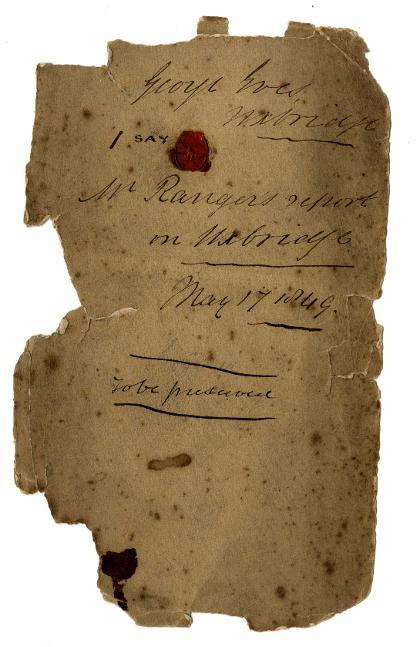 George Eves
Uxbridge
I SAY
Mr Ranger's report
on Uxbridge
May 17 1849.
To be preserved